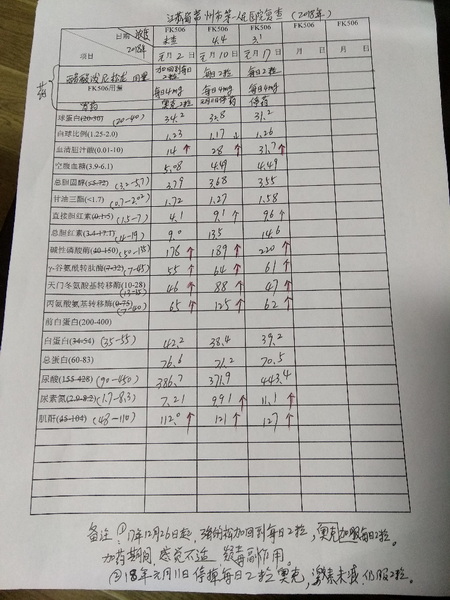 江苏省常州市第一人民医院复查 (2018年)
日期 浓度 FK506 FK506 FK506 FK506 FK506
2018年 未查 4.4 3.1
项目 元月2日 元月10日 元月17日 月 日 月 日
用量 加回到每日2粒 每日2粒 每日2粒
FK506用量 每日4mg 每日4mg 每日4mg
奥克2粒 停药
球蛋白(20-30) (20-40) 34.2 32.8 31.2
白球比例(1.25-2.0) 1.23 1.17↓ 1.26
血清胆汁酸(0.01-10) 14↑ 28↑ 31.7↑
空腹血糖(3.9-6.1) 5.08 4.49 4.49
总胆固醇 (3.2-5.7) 3.79 3.68 3.55
甘油三酯(<1.7) (0.7-2.02) 1.72 1.27 1.58
直接胆红素(0.1-5) (1.5-7) 4.1 9.1↑ 9.6↑
总胆红素(3.4-17.1) (4-19) 9.0 13.5 14.6
碱性磷酸酶(40-150) (50-135) 176↑ 189↑ 220↑
γ-谷氨酰转肽酶(7-32) (7-45) 55↑ 64↑ 61↑
天门冬氨酸基转移酶(10-28) (13-35) 46↑ 88↑ 47↑
丙氨酸氨基转移酶(0-75) (7-40) 65↑ 125↑ 62↑
前白蛋白(200-400)
白蛋白(34-54) (35-55) 42.2 38.4 39.2
总蛋白(60-83) 76.6 71.2 70.5
尿酸(155-428) (90-450) 386.7 371.9 443.4
尿素氮(2.9-8.2) (1.7-8.3) 7.21 9.91↑ 11.1↑
肌酐(45-104) (48-110) 112.0↑ 121↑ 127↑
备注:①17年12月26日起,骁悉加回到每日2粒,奥克加服每日2粒。
加药期间,感觉不适,疑毒副作用。
②18年元月11日停掉每日2粒奥克,激素未减仍服2粒。